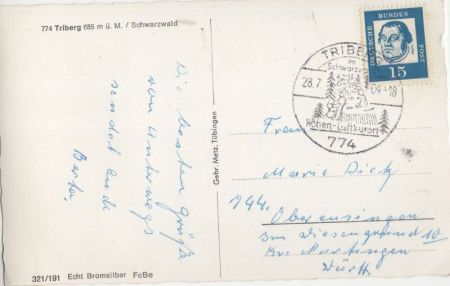 774 Triberg 685 m ü. M. / Schwarzwald
Die besten Grüße
von unterwegs
sendet Euch
Berta,
321/191 Echt Bromsilber FeBe
Gebr. Metz, Tübingen
DEUTSCHE BUNDESPOST
15
TRIBERG
im
Schwarzw
28.7
-18
Höhen-Luftkurort
774
Frau
Marie Dieti
744
Oberensingen
im Wiesengrund 10
Kr. Nürtingen
Württ.